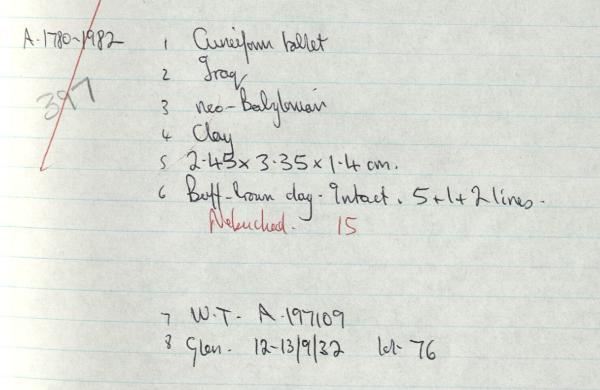 A.1780-1982 1 Cuneiform tablet
397
2 Iraq
3 neo-Babylonian
4 Clay
5 2.45 x 3.35 x 1.4 cm.
6 Buff-brown clay. Intact. 5+1+2 lines.
Nebuchad. 15
7 W.T. A.197109
8 Glen. 12-13/9/32 lot 76